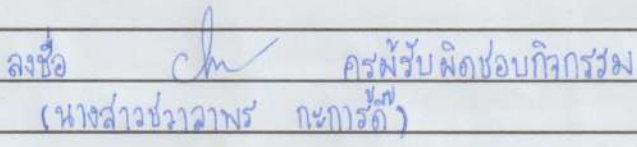 ลงชื่อ ครูผู้รับผิดชอบกิจกรรม
(นางสาวชวาลาพร กะการ์ดี)